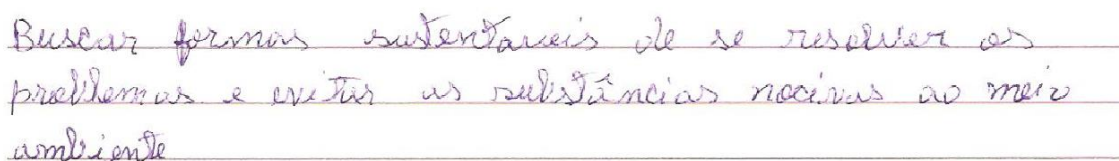 Buscar formas sustentaveis de se resolver os
problemas e evitar as substâncias nocivas ao meio
ambiente